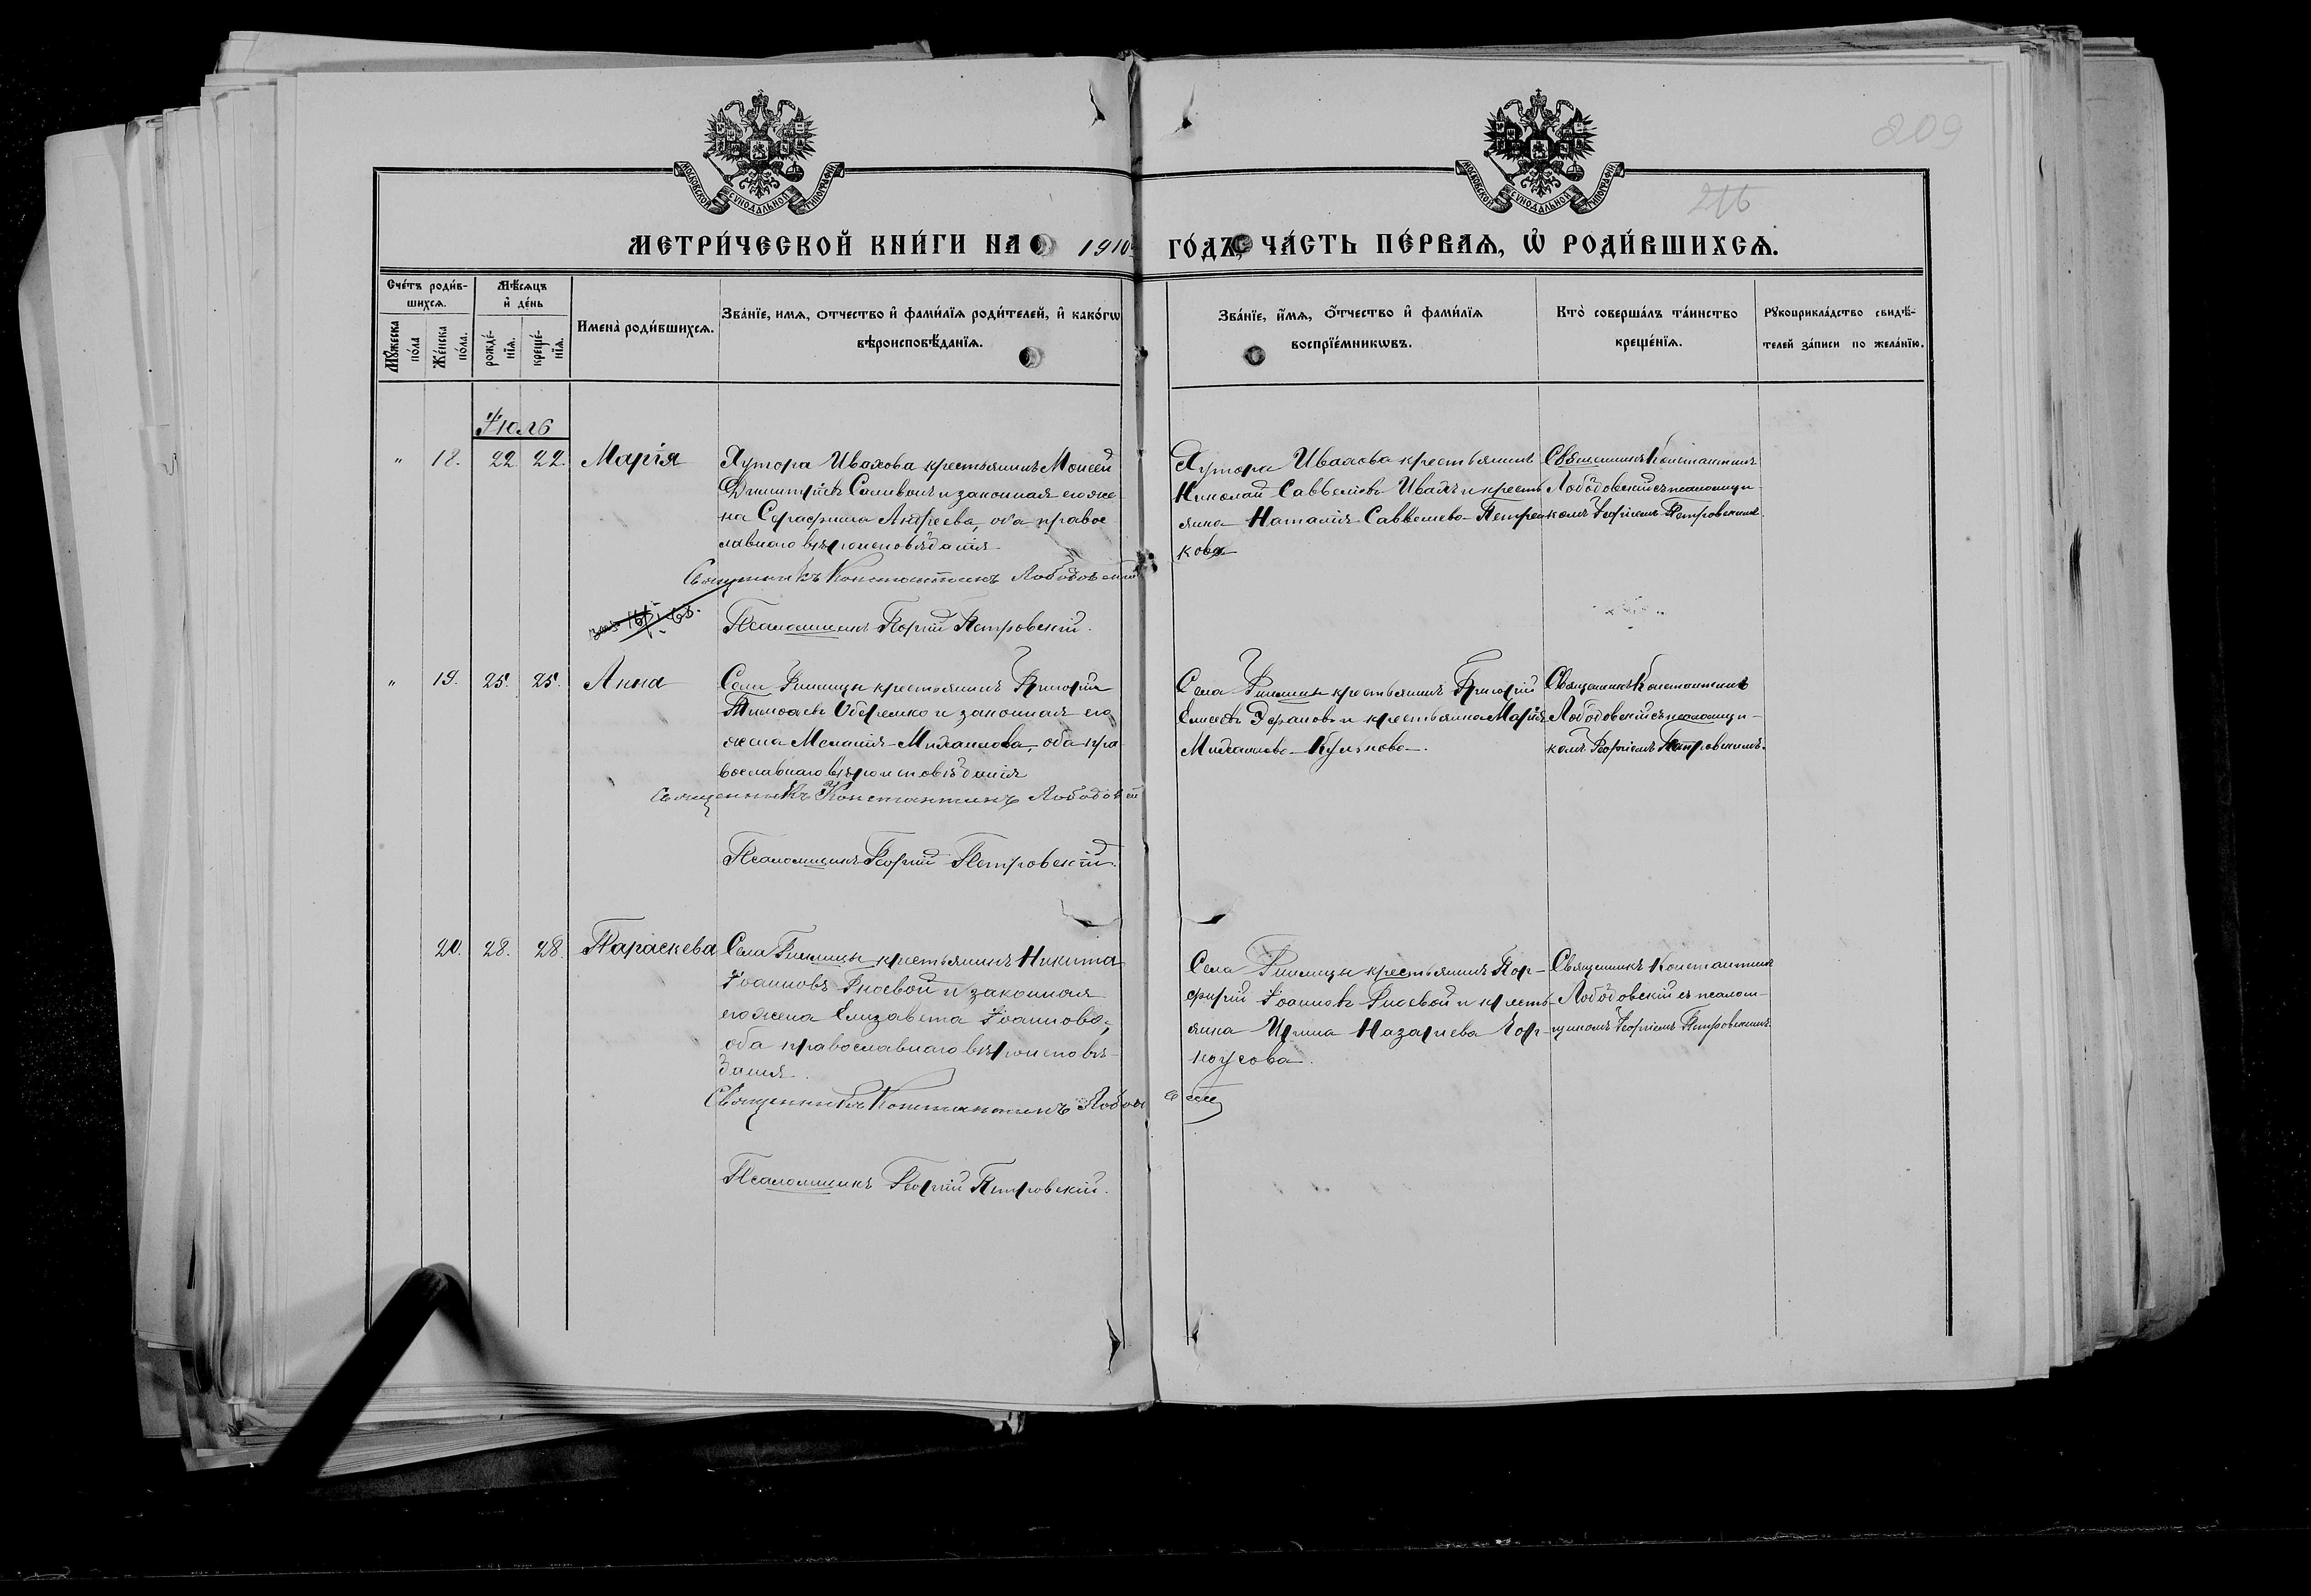 809
216
МОСКОВСКОЙ СѴНОДАЛЬНОЙ ТИПОГРАФІИ
МОСКОВСКОЙ СѴНОДАЛЬНОЙ ТИПОГРАФІИ
МЕТРИ́ЧЕСКОЙ КНИ́ГИ НА 1910
ГО́ДЪ, ЧА́СТЬ ПЕ́РВАѦ, Ѽ РОДИ́ВШИХСѦ.
Сче́тъ роди́в-
шихсѧ.
Мꙋ́жеска по́ла
Же́нска по́ла.
Мѣ́сѧцъ
и҆ де́нь
рожде́-
нїѧ.
креще́-
нїѧ.
Имена̀ роди́вшихсѧ.
Зва́нїе, имѧ, отчество и҆ фами́лїѧ роди́телей, и҆ како́гѡ
вѣроисповѣ́данїѧ.
Зва́нїе, и҆́мѧ, о҆́тчество и҆ фами́лїѧ
воспрїе́мникѡвъ.
Кто̀ соверша́лъ та́инство
креще́нїѧ.
Рꙋкоприкла́дство свидѣ́-
телей за́писи по жела́нїю.
Іюль
" 18. 22. 22. Марія
Хутора Ивахова крестьянинъ Моисей
Димитріевъ и законная его же-
на Серафима Андреева, оба правос
лавнаго вѣроисповѣданія
Священникъ Константинъ Лободовскій
Псаломщикъ Георгій Петровскій.
Хутора Ивахова крестьянинъ
Николай Савельевъ и кресть
янка Наталія Савельева Петрен
кова
Священникъ Константинъ
Лободовскій съ псаломщи-
комъ Георгіемъ Петровскимъ.
" 19. 25. 25. Анна
Села крестьянинъ Григорій
Оберемко и законная его
жена Меланія Михаилова, оба пра
вославнаго вѣроисповѣданія
Священникъ Константинъ Лободовскій
Псаломщикъ Георгій Петровскій.
Села крестьянинъ Григорій
Елисеевъ и крестьянка Марія
Михаилова
Священникъ Константинъ
Лободовскій съ псаломщи-
комъ Георгіемъ Петровскимъ.
20. 28. 28. Параскева
Села крестьянинъ Никита
Іоанновъ Гноевой и законная
его жена Елизавета Іоаннова,
оба православнаго вѣроисповѣ-
данія.
Священникъ Константинъ Лободовскій
Псаломщикъ Георгій Петровскій.
Села крестьянинъ Пор-
фирій Іоанновъ Гноевой и кресть-
янка Ирина Назариева
Священникъ Константинъ
Лободовскій съ псалом-
щикомъ Георгіемъ Петровскимъ.